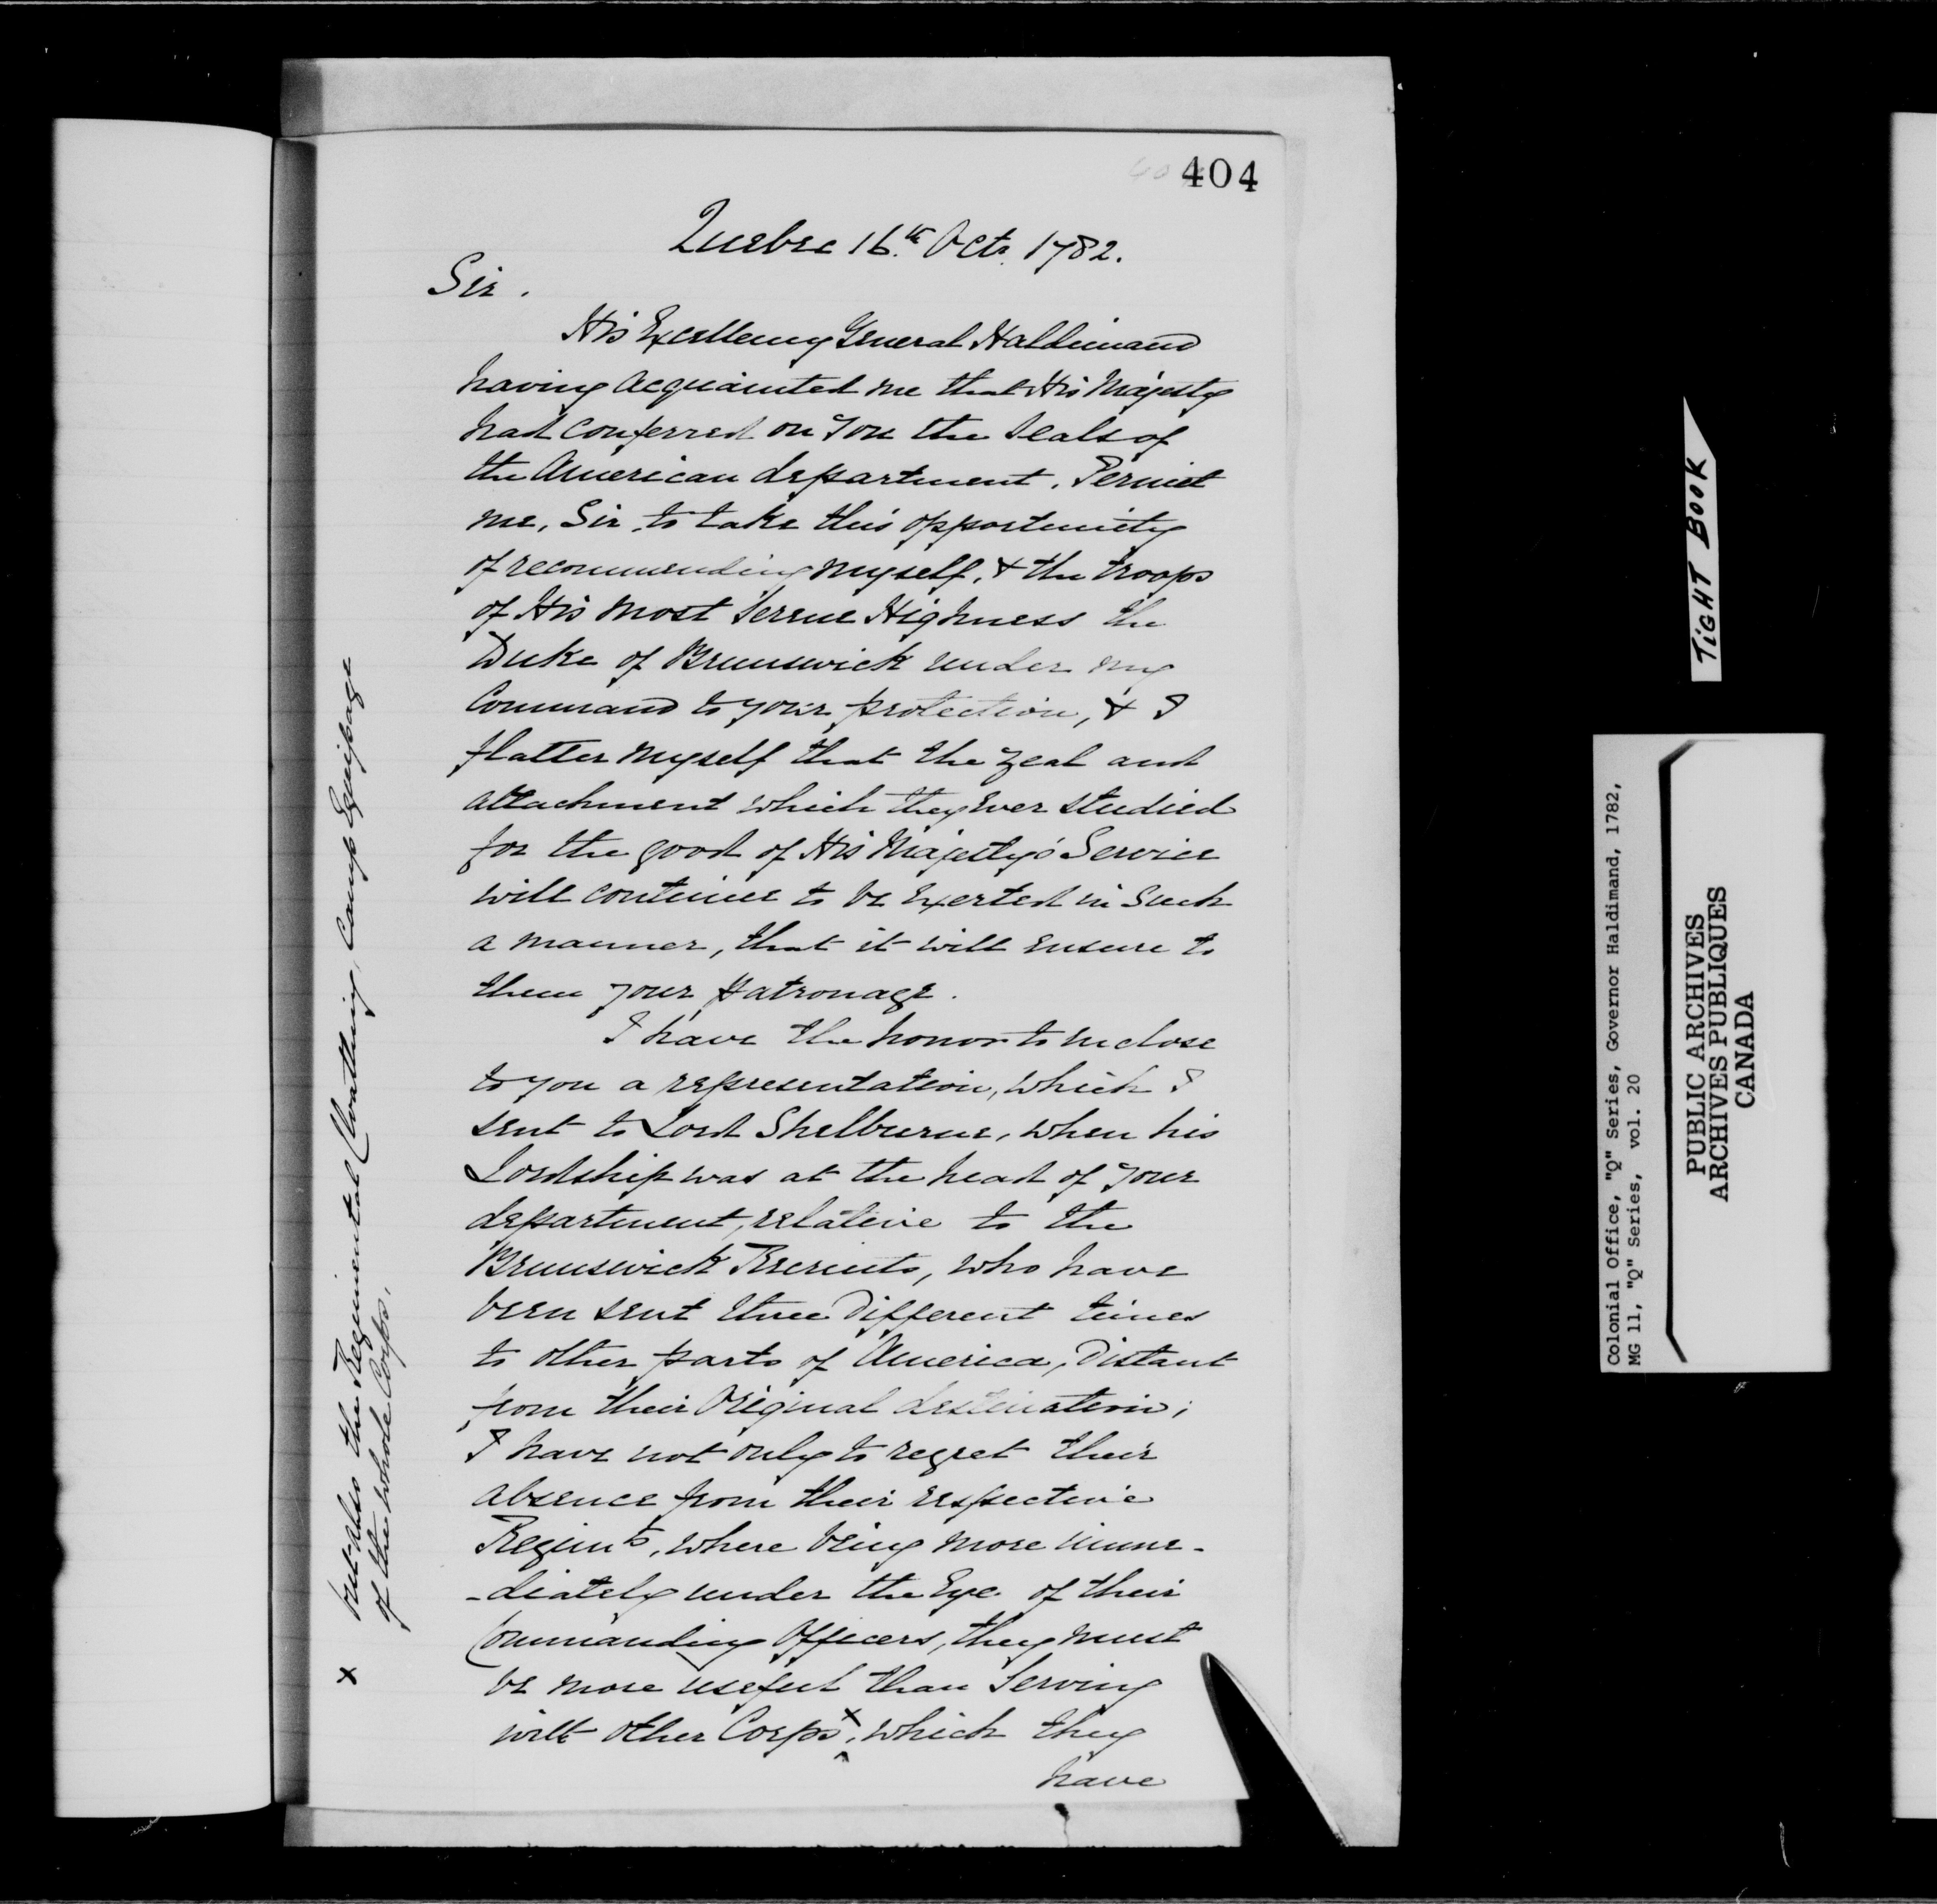 404
Quebec 16.th Octr. 1782.
Sir.
His Excellency General Haldimand
having acquainted me that His Majesty
had conferred on You the Seals of
the American department, Permit
me, Sir, to take this opportunity
of recommending myself, & the troops
of His most Serene Highness the
Duke of Brunswick under my
Command to your protection, & I
flatter myself that the zeal and
attachment which they ever studied
for the good of His Majesty's Service
will continue to be exerted in such
a manner, that it will ensure to
them your Patronage.
I have the honor to inclose
to you a representation, which I
sent to Lord Shelburne, when his
Lordship was at the head of your
department, relative to the
Brunswick Recruits, who have
been sent three different times
to other parts of America, Distant
from their Original destination;
I have not only to regret their
absence from their respective
Regimts, where being more imme-
-diately under the Eye of their
Commanding Officers, they must
be more useful than Serving
with other Corps x, which they
have
x but also the Regimental Cloathing, Camp Equipage
of the whole Corps.
TIGHT BOOK
Colonial Office, "Q" Series, Governor Haldimand, 1782,
MG 11, "Q" Series, vol. 20
PUBLIC ARCHIVES
ARCHIVES PUBLIQUES
CANADA